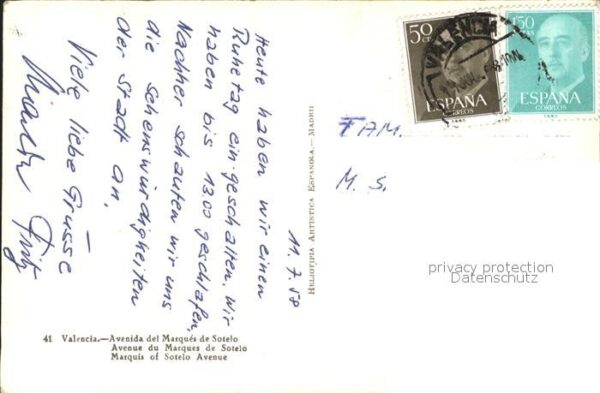 11.7.58
Heute haben wir einen
Ruhetag eingeschalten. Wir
haben bis 1300 geschlafen,
Nachher schauten wir uns
die sehenswürdigkeiten
der Stadt an.
Viele liebe Grüsse
Fritz
HELIOTIPIA ARTISTICA ESPAÑOLA.—MADRID
50 CTS
ESPAÑA
CORREOS
1'50
PTAS
ESPAÑA
CORREOS
VALENCIA
FAM.
M. S.
privacy protection
Datenschutz
41 Valencia.—Avenida del Marqués de Sotelo
Avenue du Marques de Sotelo
Marquis of Sotelo Avenue